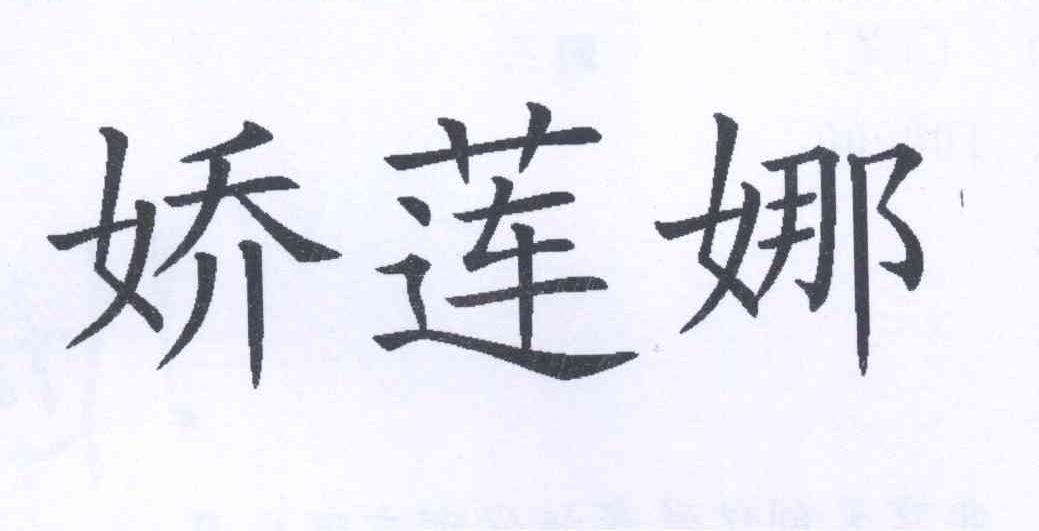 娇莲娜